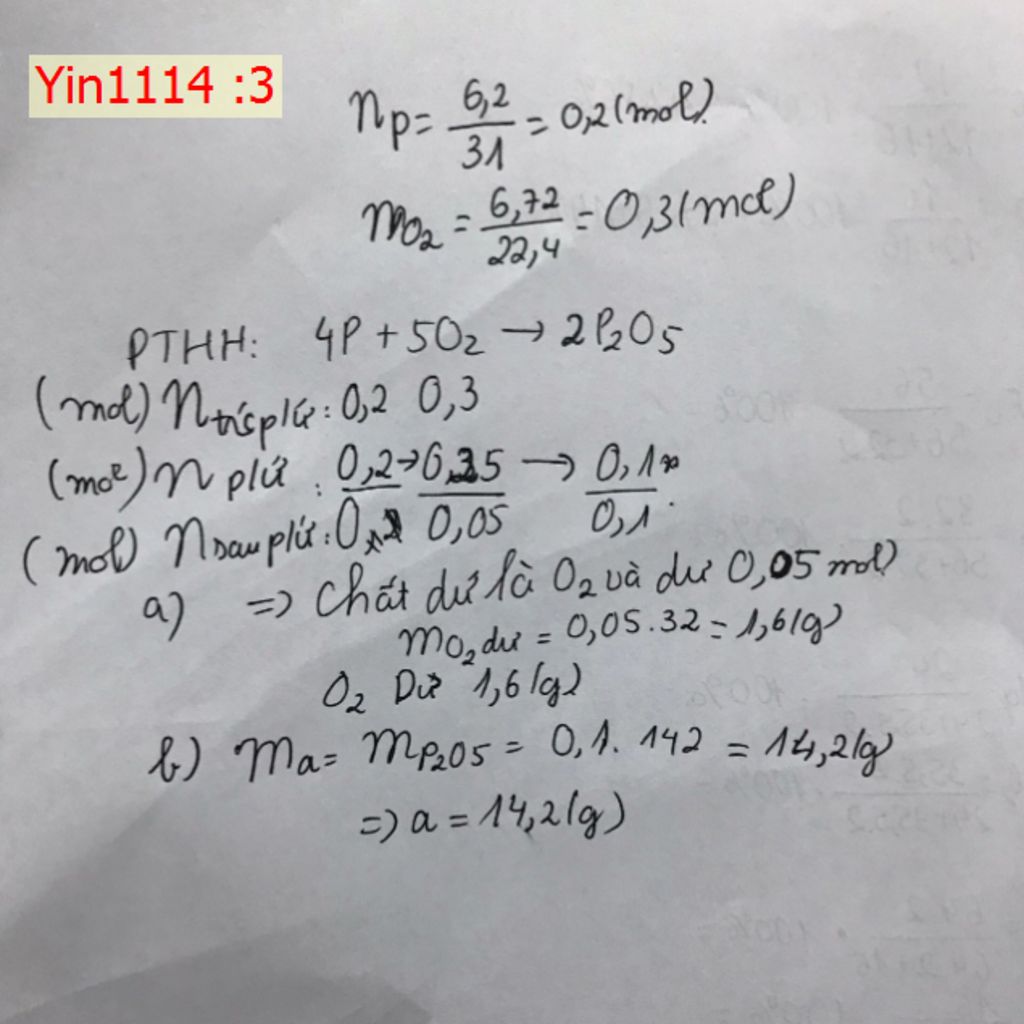 Yin1114 :3
nP = 6,2/31 = 0,2 (mol)
mO2 = 6,72/22,4 = 0,3 (mol)
PTHH: 4P + 5O2 → 2P2O5
(mol) n trc plứ: 0,2 0,3
(mol) n plứ : 0,2 → 0,25 → 0,1
(mol) n sau plứ: 0 0,05 0,1
a) => Chất dư là O2 và dư 0,05 mol
mO2 dư = 0,05.32 = 1,6 (g)
O2 Dư 1,6 (g)
b) ma = mP2O5 = 0,1. 142 = 14,2 (g)
=> a = 14,2 (g)